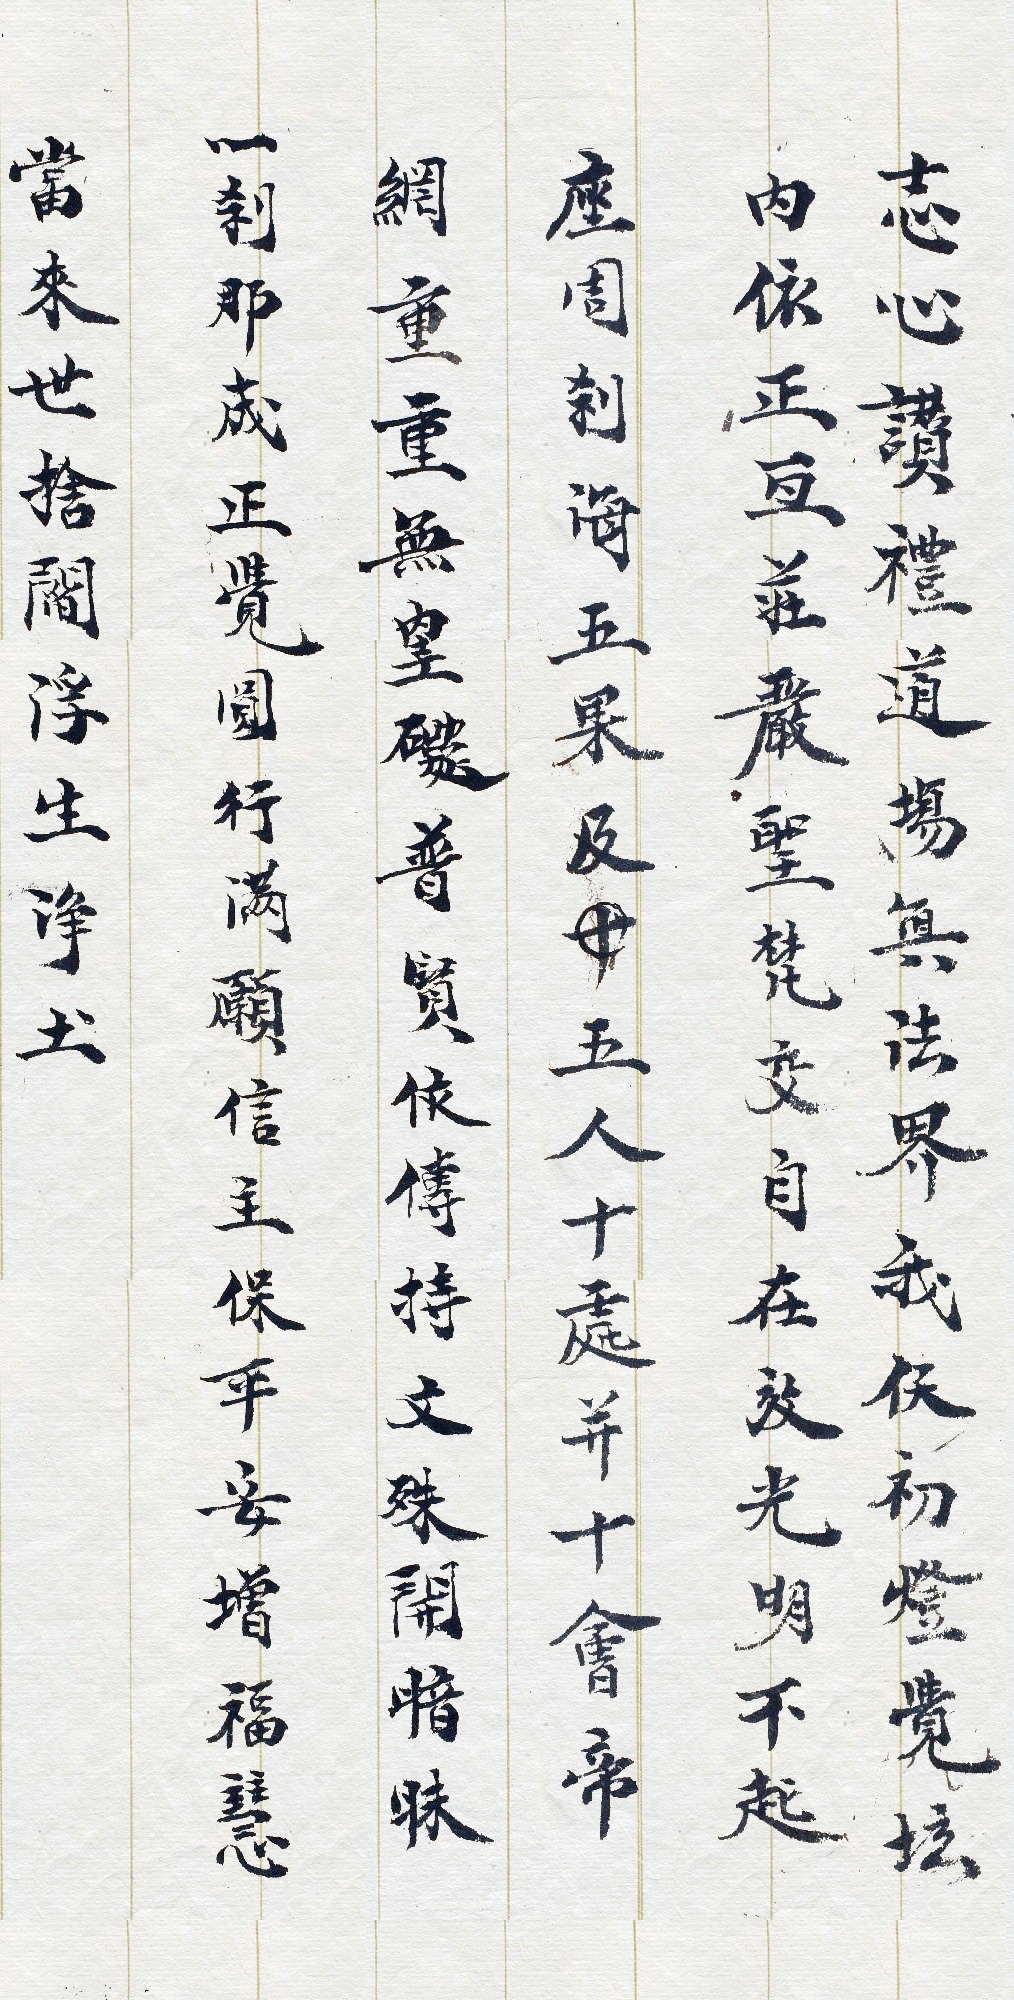 志心讚禮道場真法界我佛初登覺坛
內依正互莊嚴聖梵交自在放光明不起
座周刹海五果及五人十處并十會帝
網重重無罣礙普賢依傳持文殊開暗昧
一刹那成正覺圓行滿願信主保平安增福慧
當來世捨閻浮生淨土